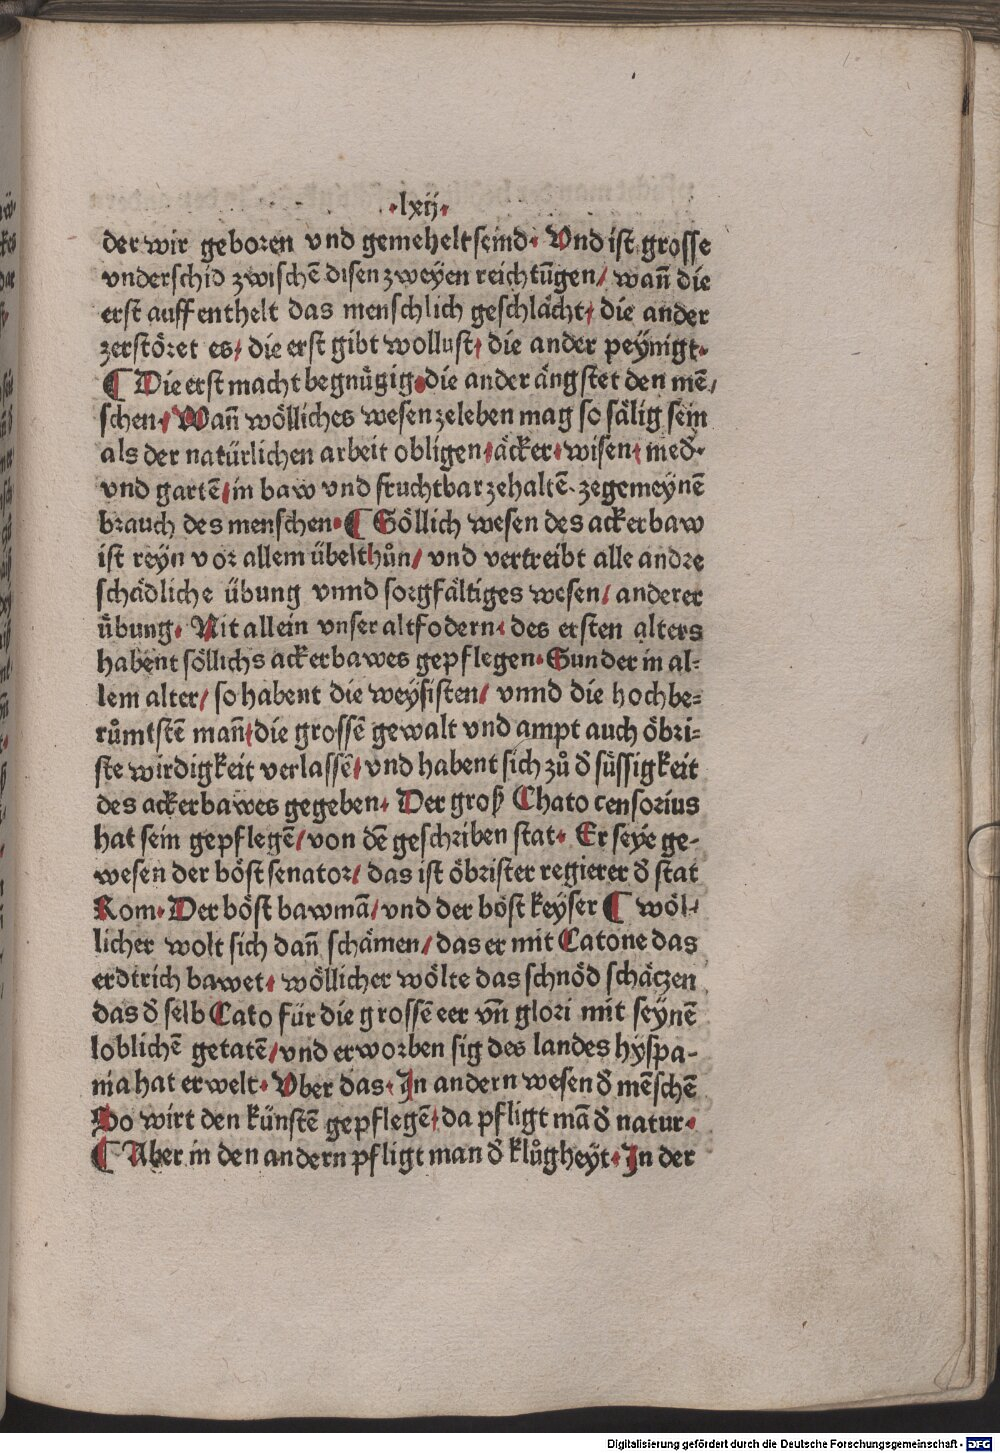 ·lxij·
der wir geboren vnd gemehelt seind· Vnd ist grosse
vnderschid zwischē disen zweyen reichtūgen/ wañ die
erst auffenthelt das menschlich geschlächt/ die ander
zerstöret es/ die erst gibt wollust/ die ander peÿnigt·
¶ Die erst macht begnügig·die ander ängstet den mē/
schen·/Wañ wölliches wesen zeleben mag so sälig sein
als der natürlichen arbeit obligen/äcker·wisen· med̄·
vnd gartē/in baw vnd fruchtbar zehaltē·zegemeÿnē
brauch des menschen·¶ Söllich wesen des ackerbaw
ist reÿn vor allem übelthůn/ vnd vertreibt alle andre
schädliche übung vnnd sorgfältiges wesen/ anderer
übung· Nit allein vnser altfodern· des ersten alters
habent söllichs ackerbawes gepflegen·Sunder in al-
lem alter/ so habent die weÿsisten/ vnnd die hochbe-
růmtstē mañ/die grossē gewalt vnd ampt auch öbri-
ste wirdigkeit verlassē/vnd habent sich zů d̄ süssigkeit
des ackerbawes gegeben· Der groß Chato censorius
hat sein gepflegē/von dē geschriben stat· Er seÿe ge-
wesen der böst senator/ das ist öbrister regierer d̄ stat
Rom·Der böst bawmā/vnd der böst keÿser ¶ wöl-
licher wolt sich dañ schämen/das er mit Catone das
erdtrich bawet· wöllicher wölte das schnöd schäczen
das d̄ selb Cato für die grossē eer vñ glori mit seÿnē
loblichē getatē/vnd erworben sig des landes hÿspa-
nia hat erwelt·Vber das·In andern wesen d̄ mēschē
Do wirt den künstē gepflegē/da pfligt mā d̄ natur·
¶ Aber in den andern pfligt man d̄ klůgheÿt·In der
Digitalisierung gefördert durch die Deutsche Forschungsgemeinschaft - DFG